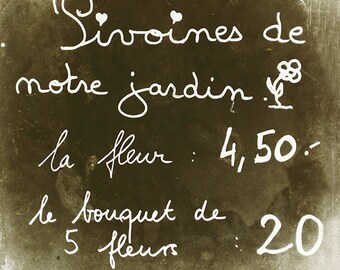 Pivoines de
notre jardin
la fleur : 4,50.-
le bouquet de
5 fleurs : 20